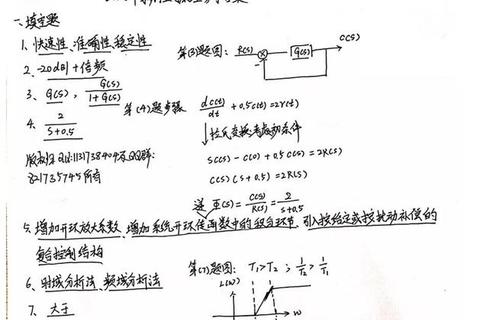 一、填空题
1、快速性、准确性、稳定性
第(3)题图: R(s) G(s) C(s)
2、-20dB/十倍频
3、G(s), G(s)/1+G(s)
第(4)题步骤 dc(t)/dt + 0.5c(t) = 2r(t)
4、2/s+0.5
拉氏变换,考虑初条件
sC(s) - C(0) + 0.5C(s) = 2R(s)
821735745所有
C(s)(s+0.5) = 2R(s)
Φ(s) = C(s)/R(s) = 2/s+0.5
5、增加开环放大系数、增加系统开环传函数中的积分环节、引入按给定或按扰动补偿的
复合控制结构
6、时域分析法、频域分析法
第(7)题图: T₁>T₂ ; 1/T₂ > 1/T₁
L(w)
w
7、大于